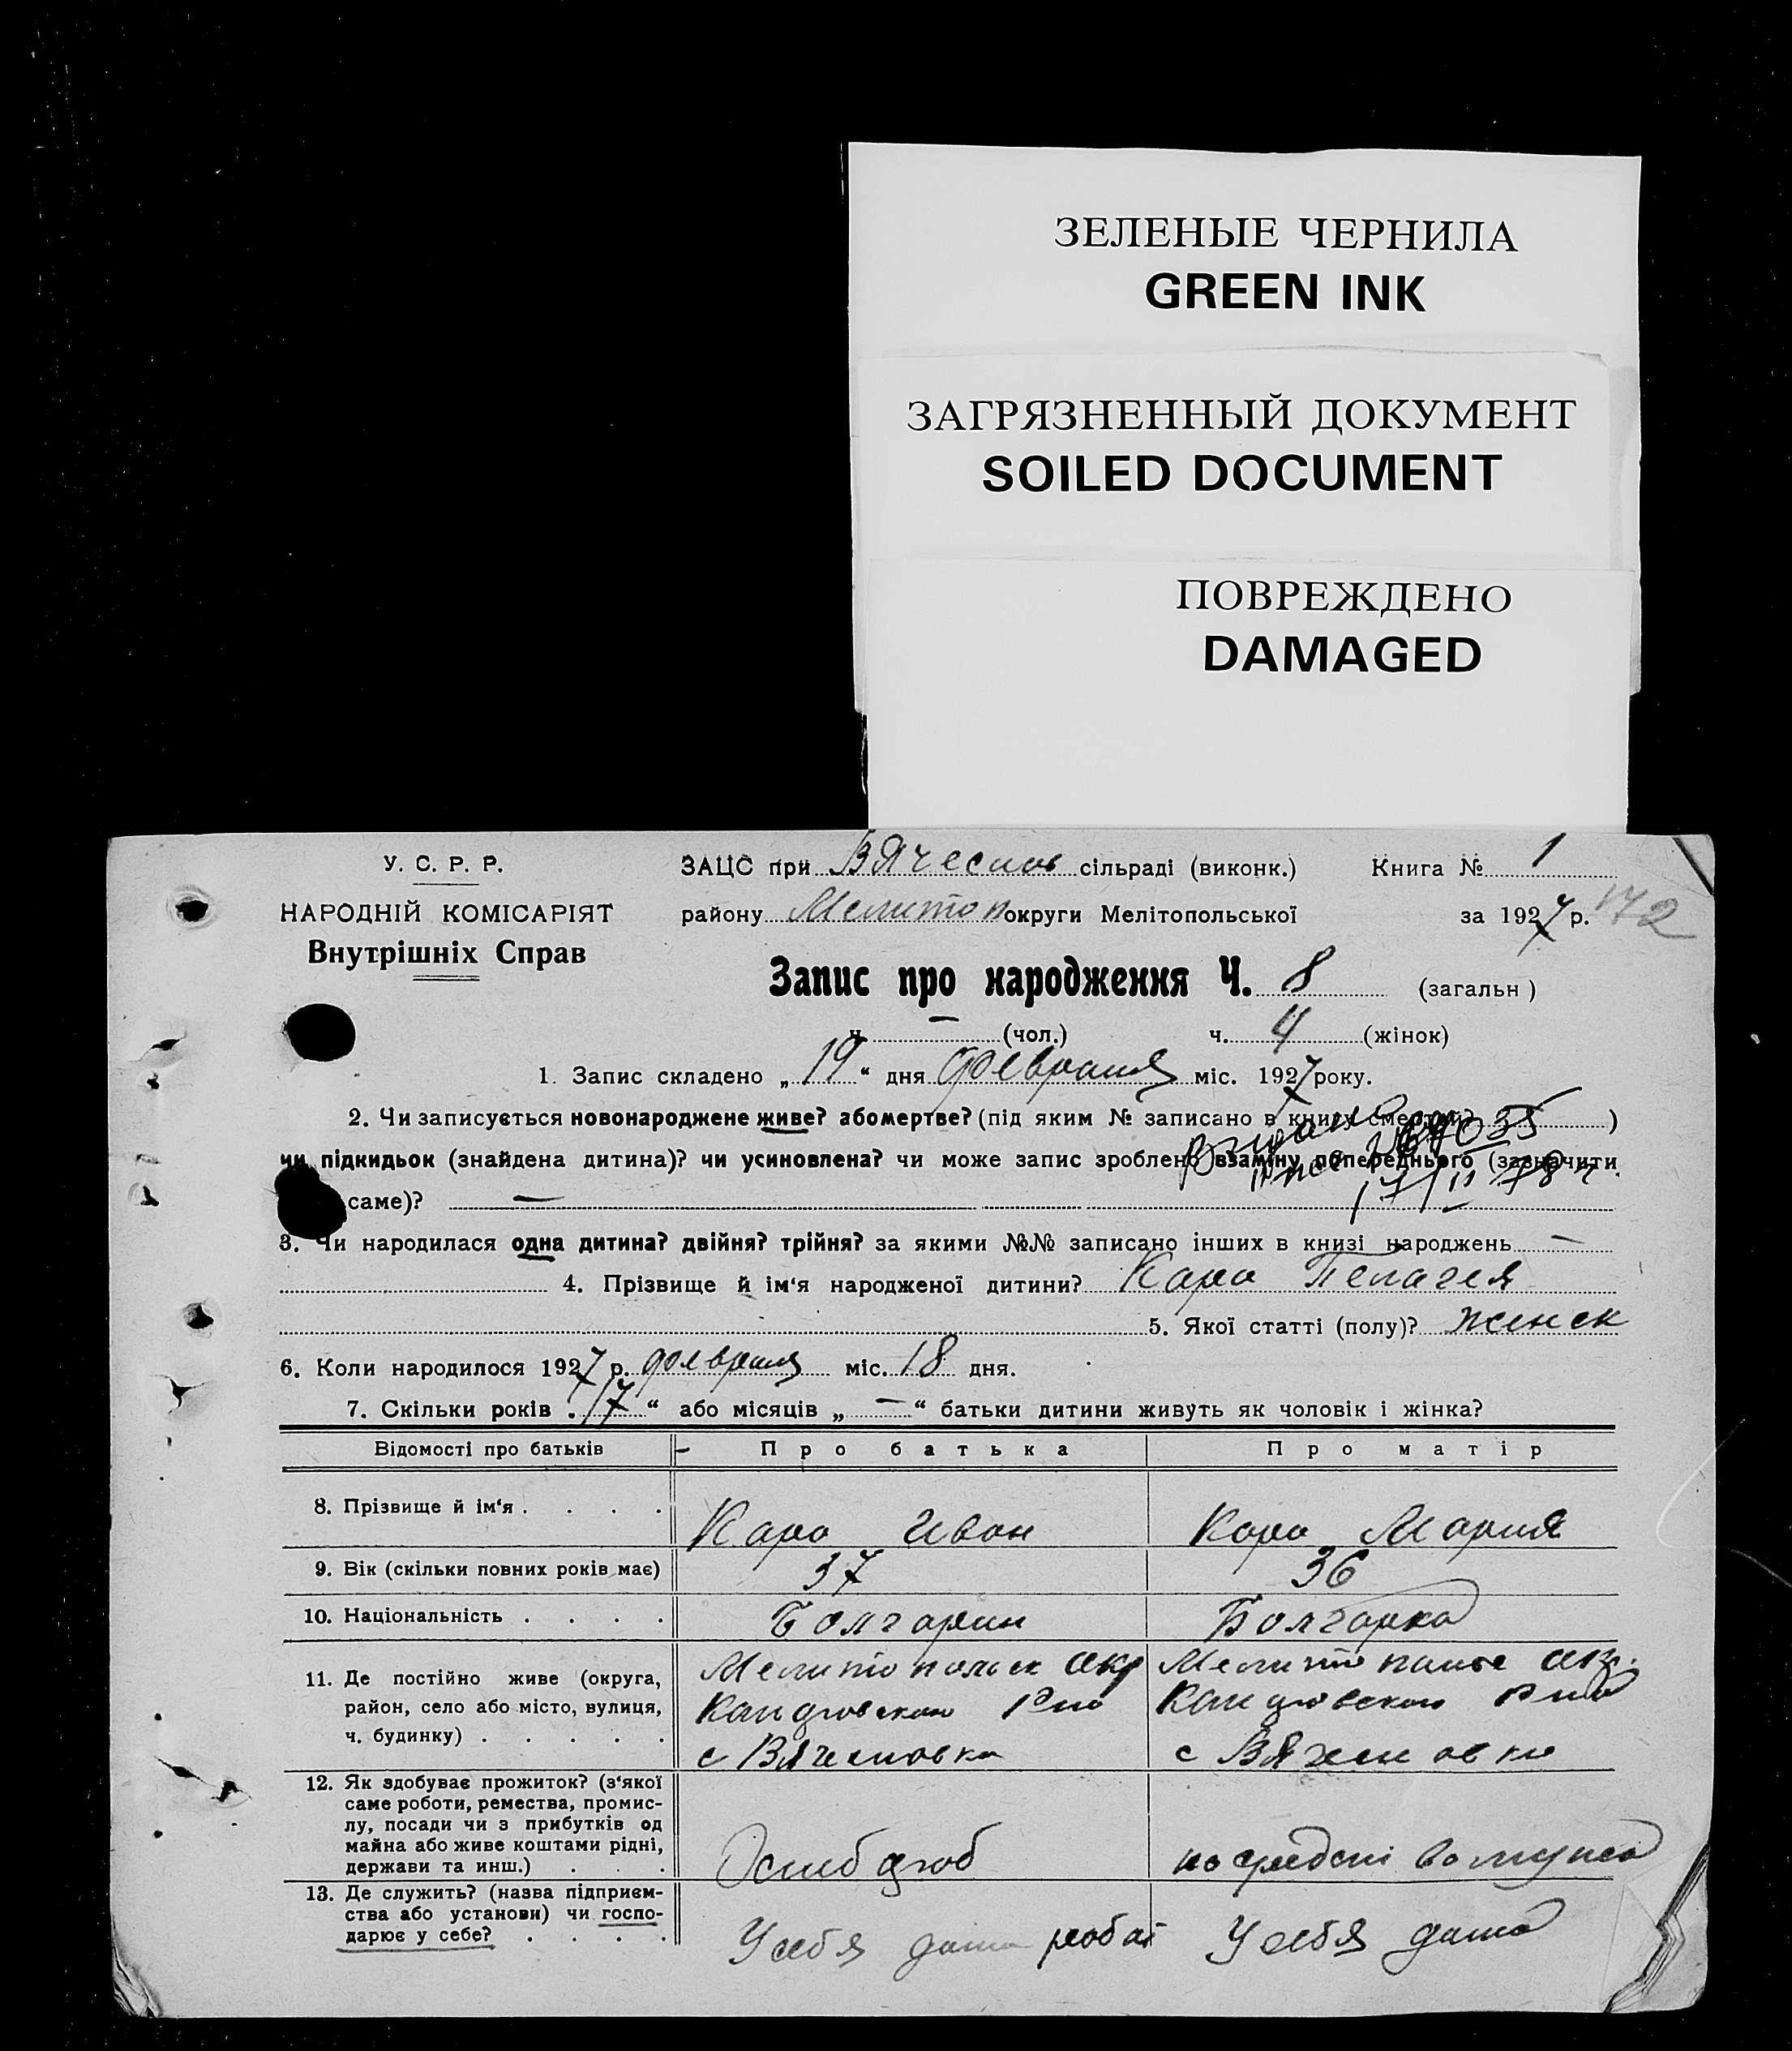 ЗЕЛЕНЫЕ ЧЕРНИЛА
GREEN INK
ЗАГРЯЗНЕННЫЙ ДОКУМЕНТ
SOILED DOCUMENT
ПОВРЕЖДЕНО
DAMAGED
У. С. Р. Р.
НАРОДНІЙ КОМІСАРІЯТ
Внутрішніх Справ
ЗАЦС при Вячеслов сільраді (виконк.) Книга № 1
району Мелитоп округи Мелітопольської за 1927 р. 172
Запис про народження Ч. 8 (загальн)
ч. — (чол.) ч. 4 (жінок)
1. Запис складено „19“ дня февраля міс. 1927 року.
2. Чи записується новонароджене живе? або мертве? (під яким № записано в книгу смертей? )
чи підкидьок (знайдена дитина)? чи усиновлена? чи може запис зроблено взаміну попереднього (зазначити
саме)? —
17/II 78 г.
3. Чи народилася одна дитина? двійня? трійня? за якими №№ записано інших в книзі народжень —
4. Прізвище й ім‘я народженої дитини? Кара Пелагея
5. Якої статті (полу)? женск
6. Коли народилося 1927 р. февраля міс. 18 дня.
7. Скільки років „17“ або місяців „—“ батьки дитини живуть як чоловік і жінка?
Відомості про батьків Про батька Про матір
8. Прізвище й ім‘я . . . . Кара Иван Кара Мария
9. Вік (скільки повних років має) 37 36
10. Національність . . . . Болгарин Болгарка
11. Де постійно живе (округа, район, село або місто, вулиця, ч. будинку) . . . . .
Мелитопольск окр
с Вячесловка
с Вячесловка
12. Як здобуває прожиток? (з‘якої саме роботи, ремества, промислу, посади чи з прибутків од майна або живе коштами рідні, держави та инш.) . . .
13. Де служить? (назва підприємства або установи) чи господарює у себе? . . . .
У себя дома работ У себя дома